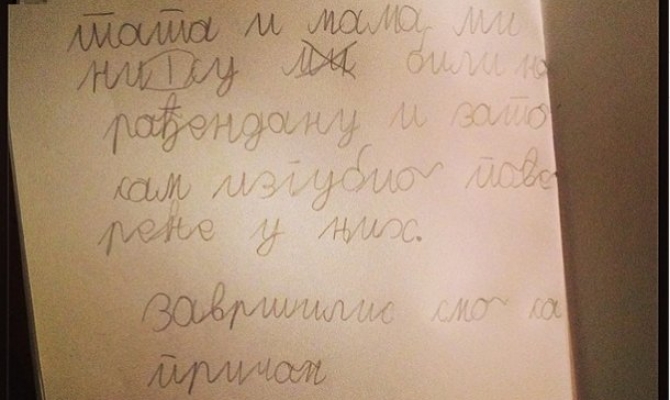 тата и мама ми
нису били на
рађендану и зато
сам изгубио пове
рене у њих.
завршилис смо са
причан